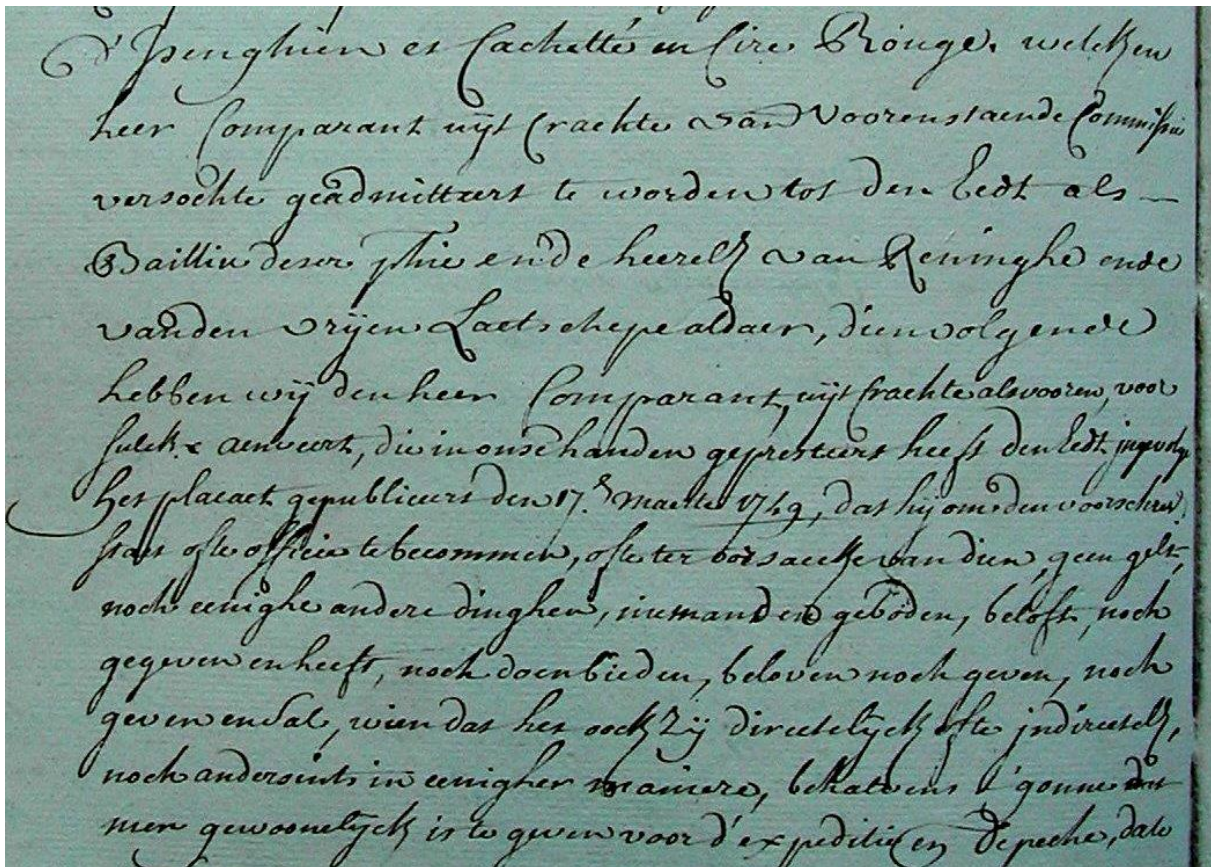 d'Isenghien et Cachetté en Cire Rouge. welcken
heer Comparant uijt Crachte van voorenstaende Commissie
versochte geädmitteert te worden tot den Eedt als —
Bailliu deser prhie ende heerelk van Reninghe ende
vanden vrijen Laetschepe aldaer, dienvolgende
hebben wij den heer Comparant, uijt Crachte alsvooren, voor
sulckx aenveert, die in onse handen gepresteert heeft den Eedt ingevolge
het placaet gepubliceert den 17.e maerte 1749, dat hij om den voorschrev.
staet ofte officie te becommen, ofte ter oorsaecke van dien, geen gelt,
noch eenighe andere dinghen, niemanden geboden, beloft, noch
gegeven en heeft, noch doen bieden, beloven noch geven, noch
geven en sal, wien dat het oock zij directelijck ofte indirectelk,
noch andersints in eenigher maniere, behalvens 't gonne dat
men gewoonelijck is te geven voor d'expeditie en depeche, dat